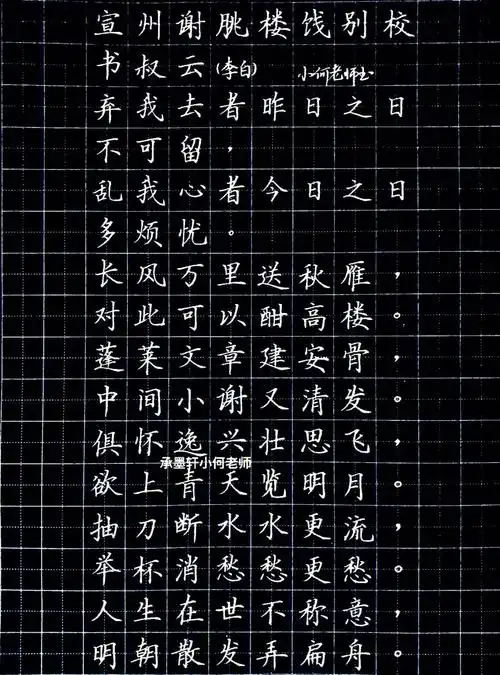 宣州谢朓楼饯别校
书叔云(李白) 小何老师书
弃我去者昨日之日
不可留，
乱我心者今日之日
多烦忧。
长风万里送秋雁，
对此可以酣高楼。
蓬莱文章建安骨，
中间小谢又清发。
俱怀逸兴壮思飞，
承墨轩小何老师
欲上青天览明月。
抽刀断水水更流，
举杯消愁愁更愁。
人生在世不称意，
明朝散发弄扁舟。